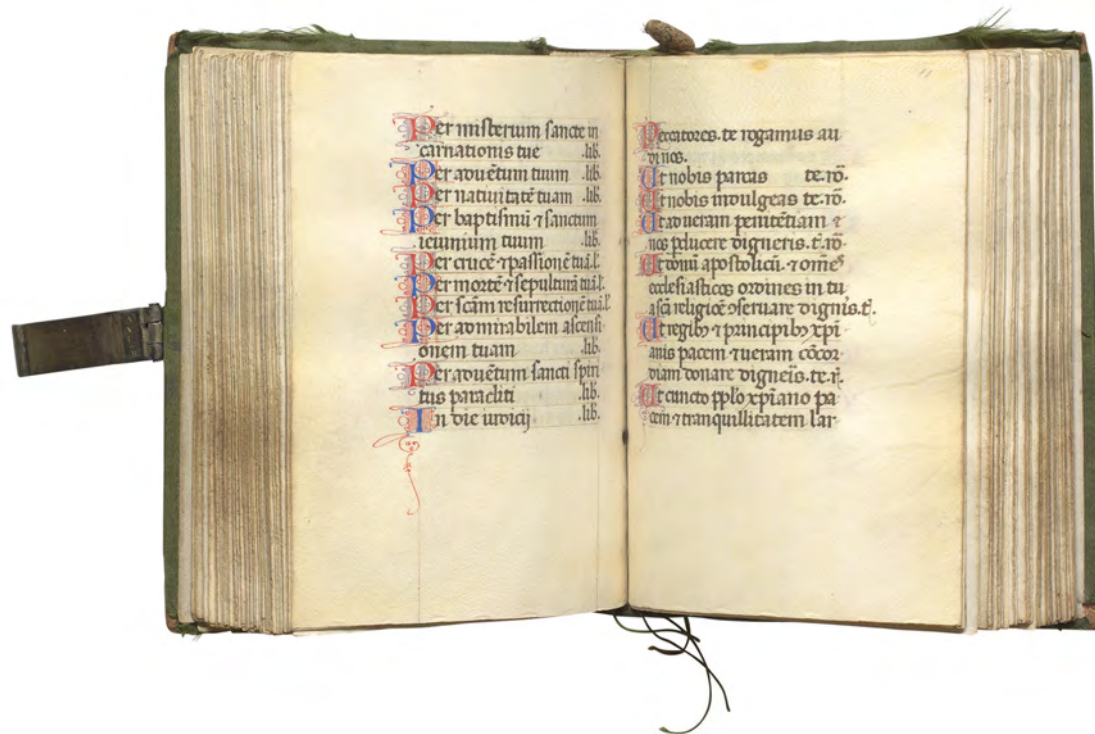 Per misterium sancte in
carnationis tue .lib.
Per aduētum tuum .lib.
Per natiuitatē tuam .lib.
Per baptismū ⁊ sanctum
ieiunium tuum .lib.
Per crucē ⁊ passionē tuā.l'.
Per mortē ⁊ sepulturā tuā.l'.
Per scām resurrectionē tuā.l'.
Per admirabilem ascensi
onem tuam .lib.
Per aduētum sancti spiri
tus paracliti .lib.
In die iudicij .lib.
Peccatores. te rogamus au
di nos.
Ut nobis parcas te. rō.
Ut nobis indulgeas te. rō.
Ut ad ueram penitētiam ⁊
nos pducere digneris. t. rō.
Ut domū apostolicū. ⁊ omēs
ecclesiasticos ordines in tu
a scā religiōe ↄseruare dignis. t.
Ut regib⁊ ⁊ principib⁊ xpi
anis pacem ⁊ ueram cōcor
diam donare digneīs. te. r.
Ut cuncto pplo xpiano pa
cem ⁊ tranquillitatem lar